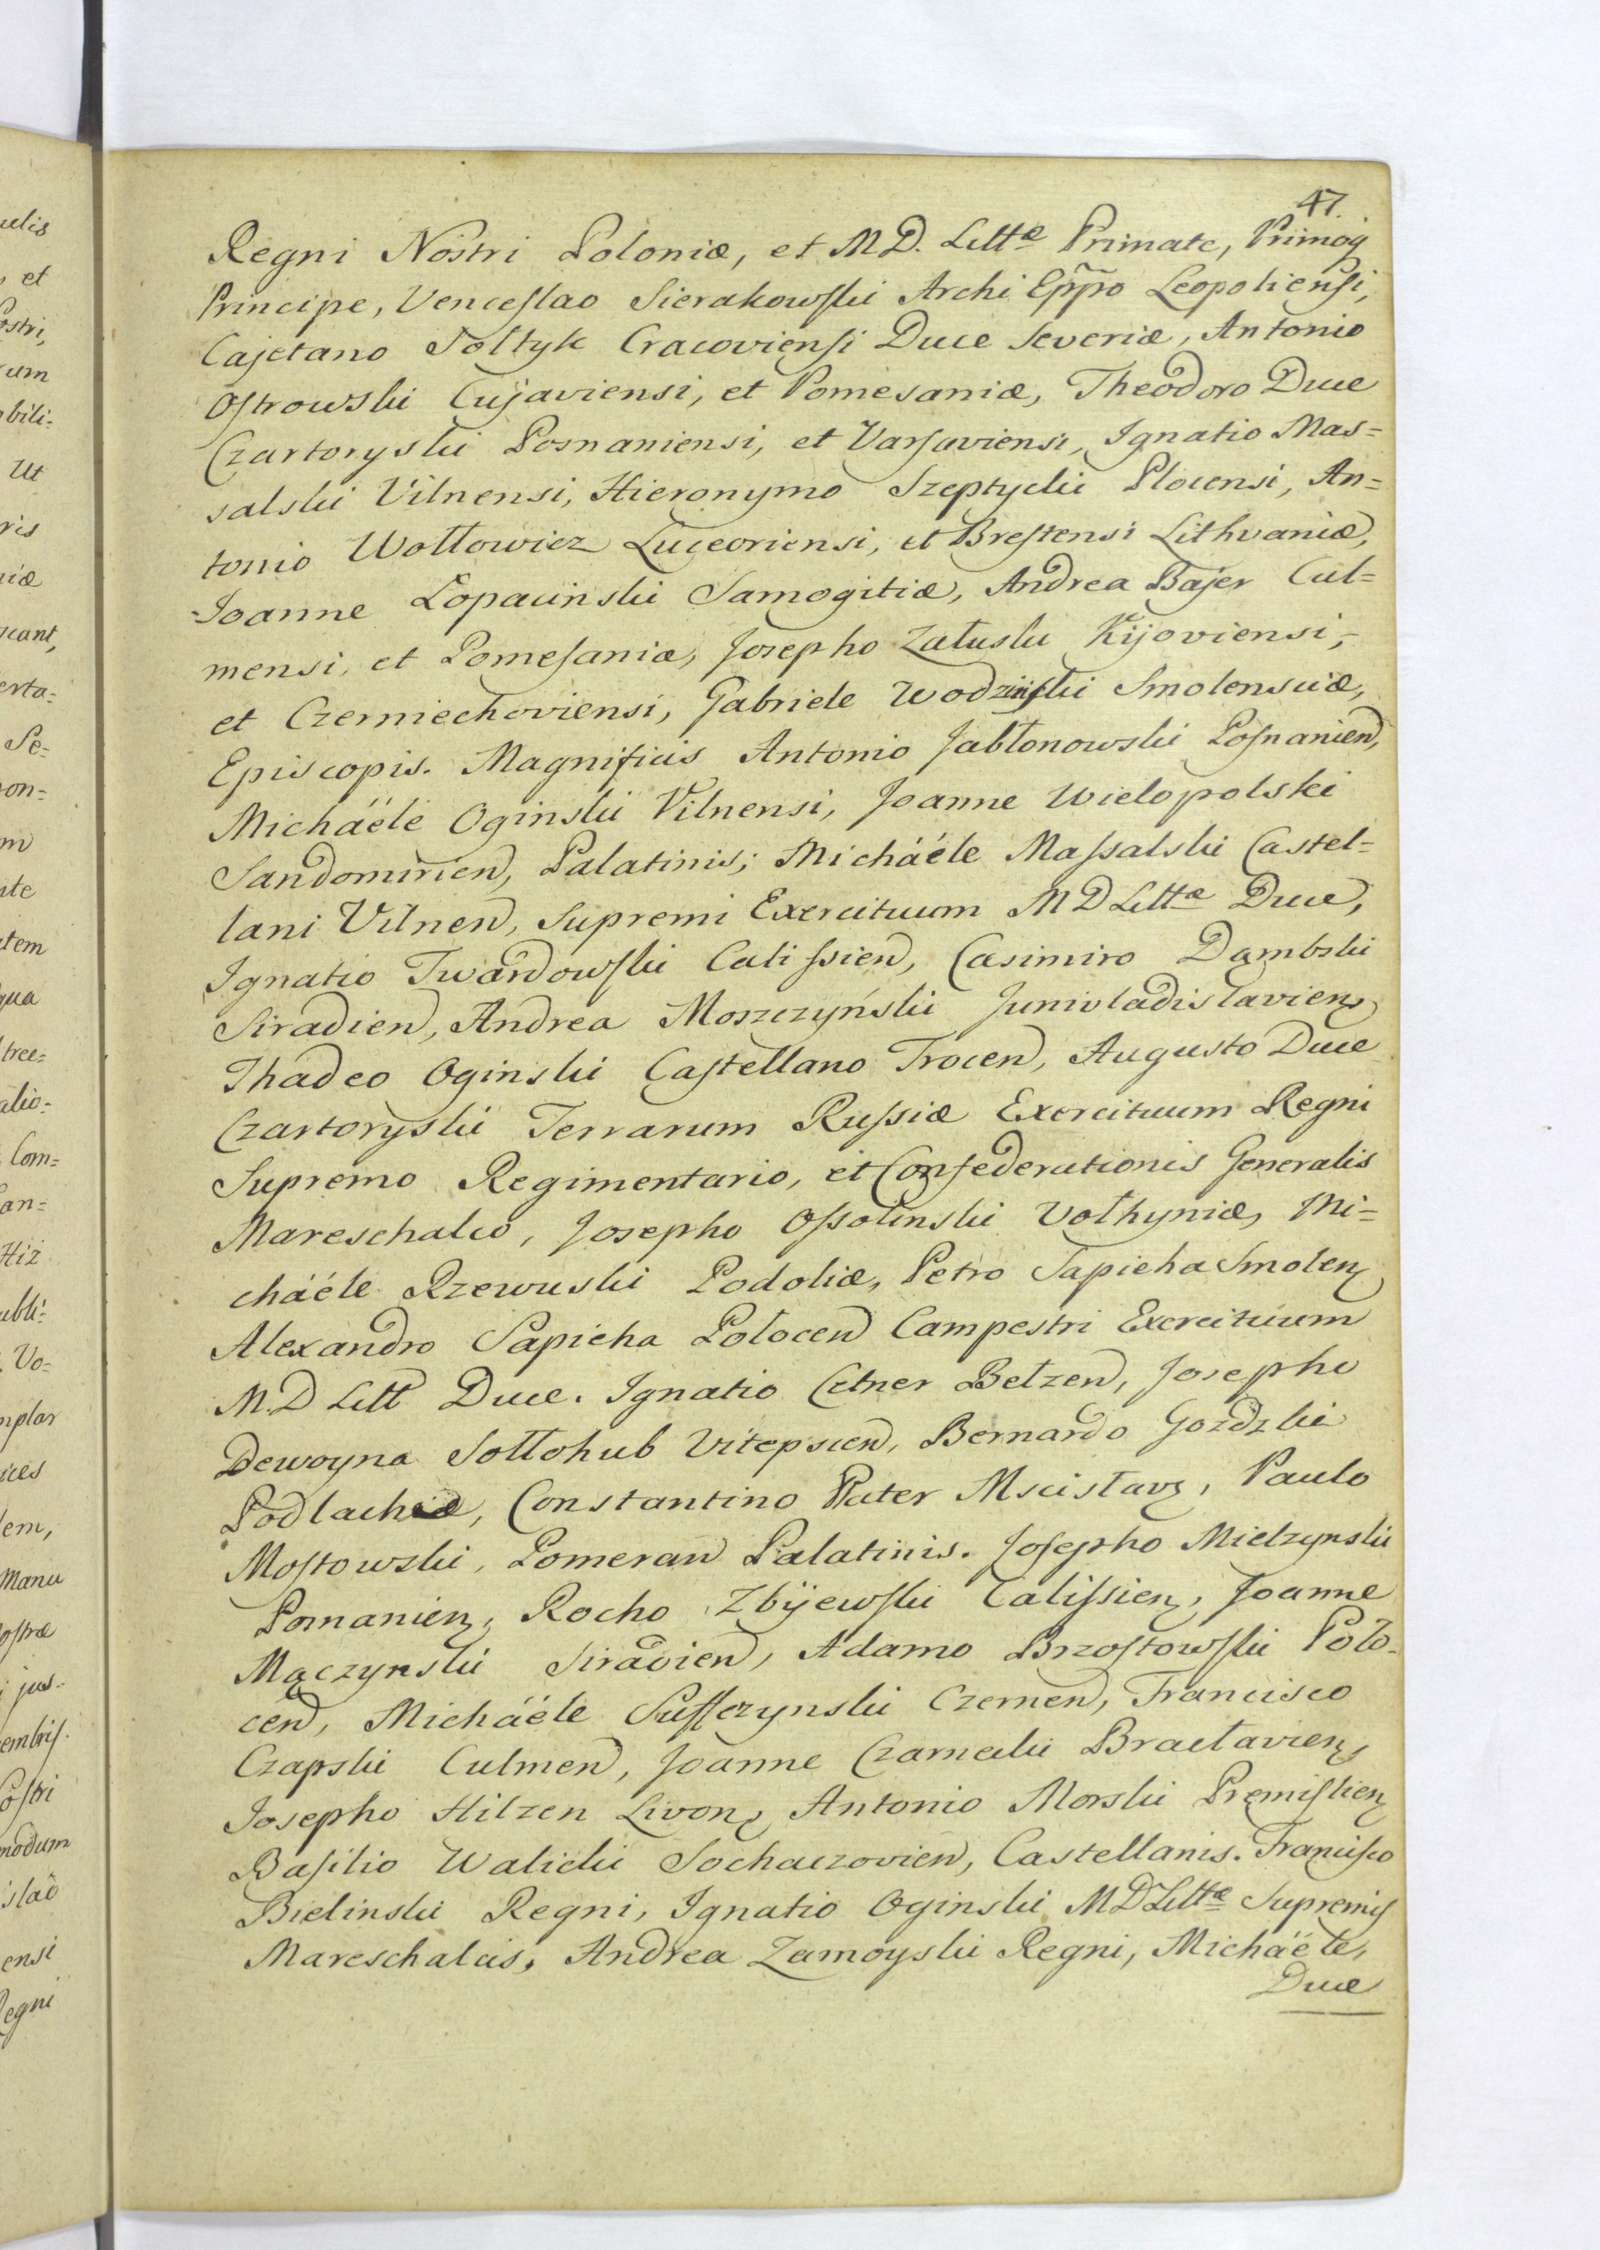 47.
Regni Nostri Poloniæ, et M D. Littæ Primate, Primoq
Principe, Venceslao Sierakowski Archi Eppo Leopoliensi,
Cajetano Soltyk Cracoviensi Duce Severiæ, Antonio
Ostrowski Cujaviensi, et Pomesaniæ, Theodoro Duce
Czartoryski Posnaniensi, et Varsaviensi, Ignatio Mas=
salski Vilnensi, Hieronymo Szeptycki Plocensi, An=
tonio Wołłowicz Luceoriensi, et Brestensi Lithvaniæ,
Joanne Łopacinski Samogitiæ, Andrea Bajer Cul=
mensi, et Pomesaniæ, Josepho Załuski Kijoviensi,
et Czerniechoviensi, Gabriele Wodzinski Smolensciæ,
Episcopis. Magnificis Antonio Jabłonowski Posnanien,
Michäéle Oginski Vilnensi, Joanne Wielopolski
Sandomirien, Palatinis; Michäéle Massalski Castel=
lani Vilnen, Supremi Exercituum M D Littæ Duce,
Ignatio Twardowski Calissien, Casimiro Dąmbski
Siradien, Andrea Moszczyński Junivladislavien,
Thadeo Oginski Castellano Trocen, Augusto Duce
Czartoryski Terrarum Russiæ Exercituum Regni
Supremo Regimentario, et Confederationis Generalis
Mareschalco, Josepho Ossolinski Volhyniæ, Mi=
cháéle Rzewuski Podoliæ, Petro Sapieha Smolen,
Alexandro Sapieha Polocen Campestri Exercituum
M.D Litt Duce. Ignatio Cetner Belzen, Josepho
Dewoyna Sołłohub Vitepscen, Bernardo Gozdzki
Podlachiæ, Constantino Plater Mscislav, Paulo
Mostowski, Pomeran Palatinis. Josepho Mielzynski
Posnanien, Rocho Zbijewski Calissien, Joanne
Mączynski Siradien, Adamo Brzostowski Polo-
cen, Micháéle Suffczynski Czernen, Francisco
Czapski Culmen, Joanne Czarnecki Bracłavien,
Josepho Hilzen Livon, Antonio Morski Premislien,
Basilio Walicki Sochaczovien, Castellanis. Francisco
Bielinski Regni, Ignatio Oginski M D Littæ Supremis
Mareschalcis, Andrea Zamoyski Regni, Michäéle,
Duce